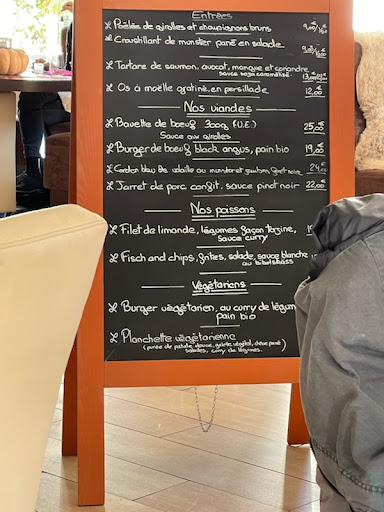 Entrées
Poêlée de girolles et champignons bruns
Croustillant de munster pané en salade
Tartare de saumon, avocat, mangue et coriandre
sauce soja caramélisé
Os à moëlle gratiné, en persillade 12,00€
Nos viandes
Bavette de boeuf 300g (U.E.) 25,00€
Sauce aux girolles
Burger de boeuf black angus, pain bio 19,00€
Cordon bleu de volaille au munster et jambon, 24,00€
Jarret de porc confit, sauce pinot noir 22,00€
Nos poissons
Filet de limande, légumes façon tagine,
sauce curry
Fisch and chips, frites, salade, sauce blanche
au bibelskäss
Végétariens
Burger végétarien, au curry de légum
pain bio
Planchette végétarienne
(purée de patate douce, galette végétal, chèvre pané
salades, curry de légumes.